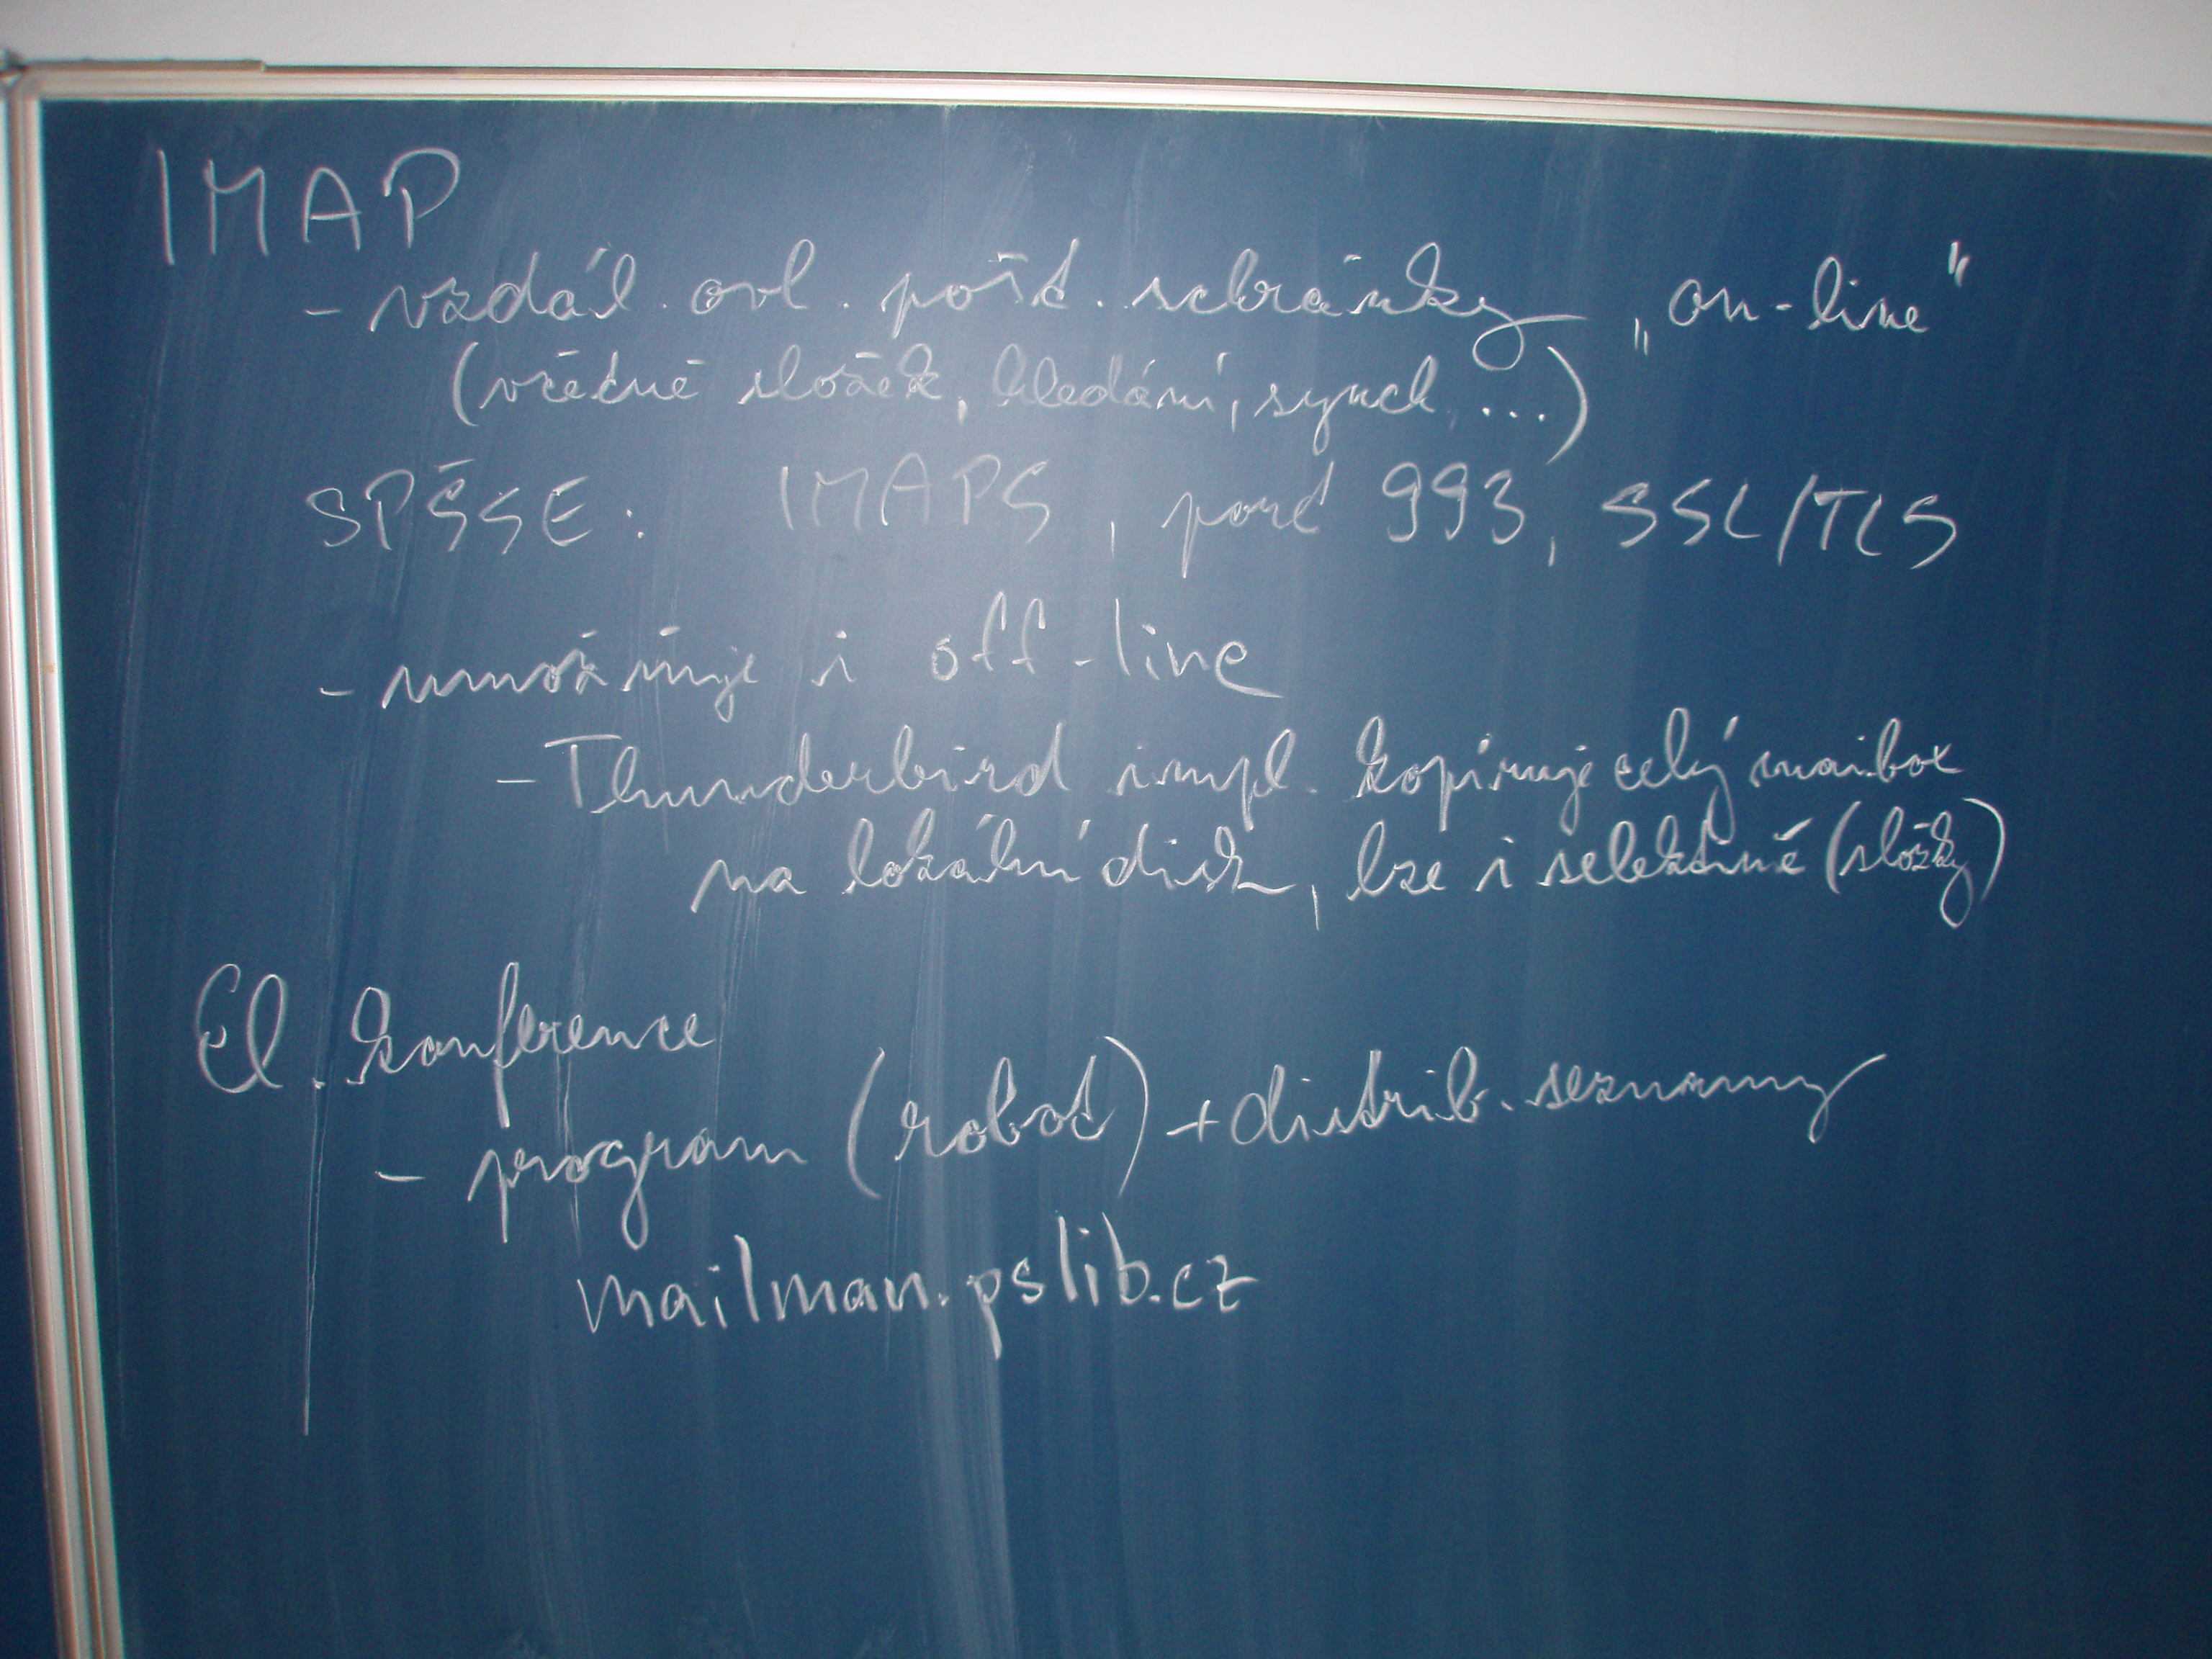 IMAP
- vzdál. ovl. pošt. schránky „on-line"
(včetně složek, hledání, synch, ...)
SPŠSE: IMAPS, port 993, SSL/TLS
- umožňuje i off-line
- Thunderbird impl. kopíruje celý maibox
na lokální disk, lze i selektivně (složky)
El. konference
- program (robot) + distrib. seznamy
mailman.pslib.cz